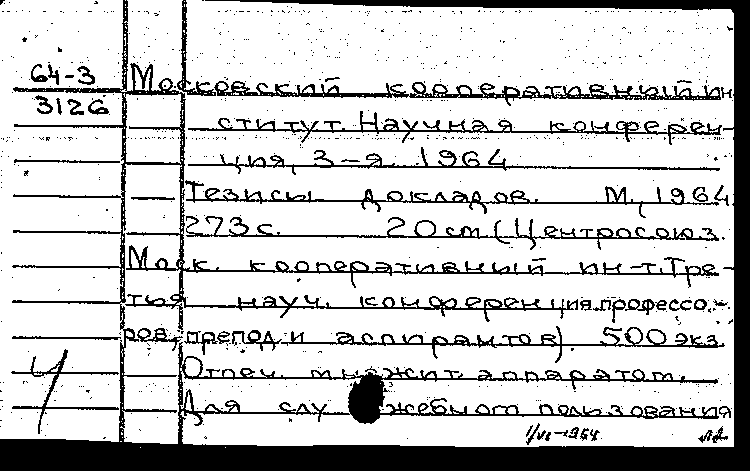 64-3 Московский кооперативный ин-
3126 ститут. Научная конферен-
ция, 3-я. 1964
Тезисы докладов. М., 1964
273 с. 20 см (Центросоюз.
Моск. кооперативный ин-т. Тре-
тья науч. конференция профессо-
ров, препод. и аспирантов). 500 экз.
Отпеч. множит. аппаратом.
Для служебного пользования